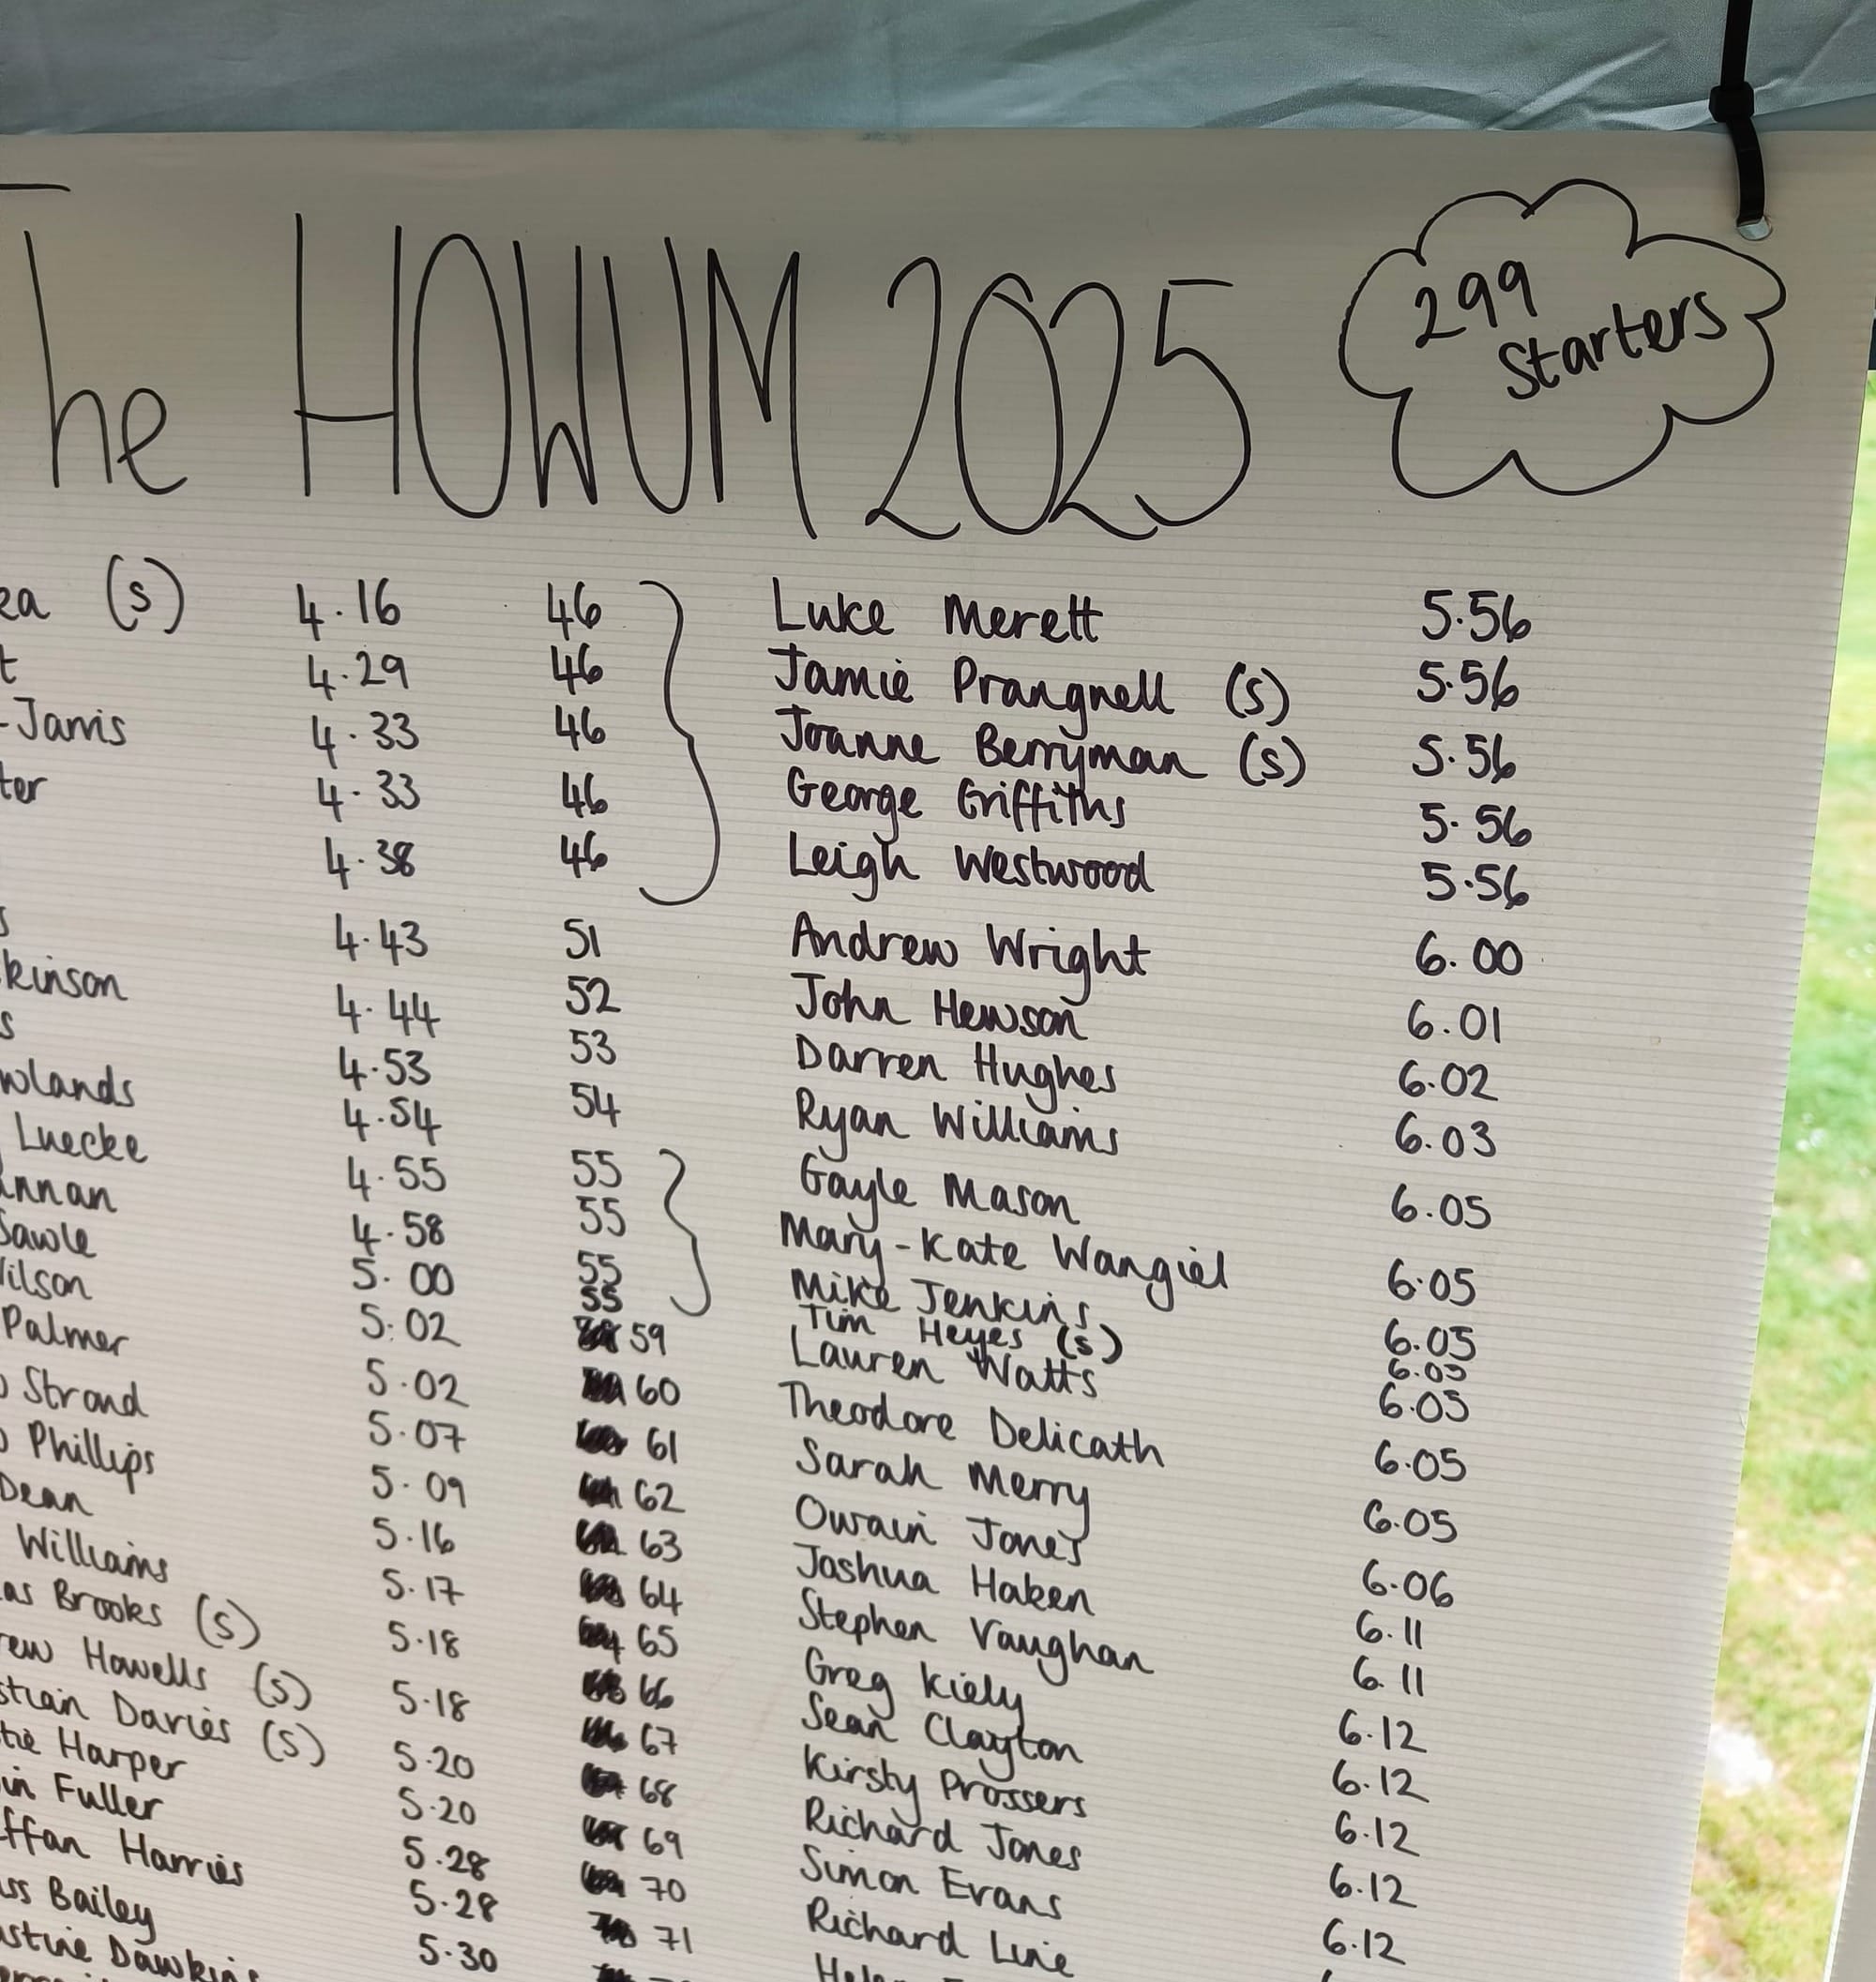 The HOWUM 2025
299
starters
ea (s) 4.16
t 4.29
-Jarvis 4.33
ter 4.33
4.38
s 4.43
kinson 4.44
s 4.53
wlands 4.54
Luecke 4.55
annan 4.58
Sawle 5.00
Wilson 5.02
Palmer 5.02
o Strand 5.07
o Phillips 5.09
Dean 5.16
Williams 5.17
as Brooks (s) 5.18
rew Howells (s) 5.18
stian Davies (s) 5.20
tie Harper 5.20
in Fuller 5.28
ffan Harries 5.28
ss Bailey 5.30
stine Dawkins
46 Luke Merett 5.56
46 Jamie Prangnell (s) 5.56
46 Joanne Berryman (s) 5.56
46 George Griffiths 5.56
46 Leigh Westwood 5.56
51 Andrew Wright 6.00
52 John Hewson 6.01
53 Darren Hughes 6.02
54 Ryan Williams 6.03
55 Gayle Mason 6.05
55 Mary-Kate Wangiel 6.05
55 Mike Jenkins 6.05
55 Tim Heyes (s) 6.05
59 Lauren Watts 6.05
60 Theodore Delicath 6.05
61 Sarah Merry 6.05
62 Owain Jones 6.06
63 Joshua Haken 6.11
64 Stephen Vaughan 6.11
65 Greg Kiely 6.12
66 Sean Clayton 6.12
67 Kirsty Prossers 6.12
68 Richard Jones 6.12
69 Simon Evans 6.12
70 Richard Line
71